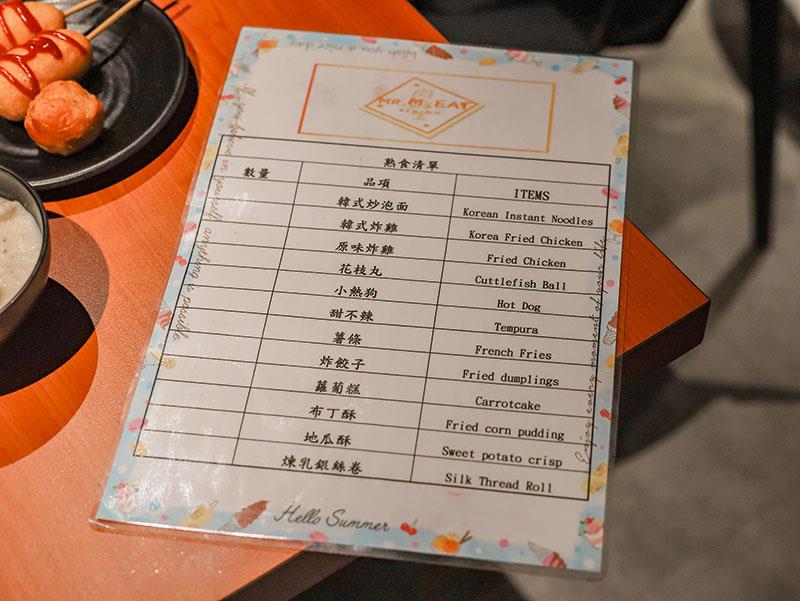 Wish you a nice day
MR. MEAT
熟食清單
數量 品項 ITEMS
韓式炒泡面 Korean Instant Noodles
韓式炸雞 Korea Fried Chicken
原味炸雞 Fried Chicken
花枝丸 Cuttlefish Ball
小熱狗 Hot Dog
甜不辣 Tempura
薯條 French Fries
炸餃子 Fried dumplings
蘿蔔糕 Carrotcake
布丁酥 Fried corn pudding
地瓜酥 Sweet potato crisp
煉乳銀絲卷 Silk Thread Roll
If you focus on yourself anything is possible
Enjoy every moment of your life
Hello Summer